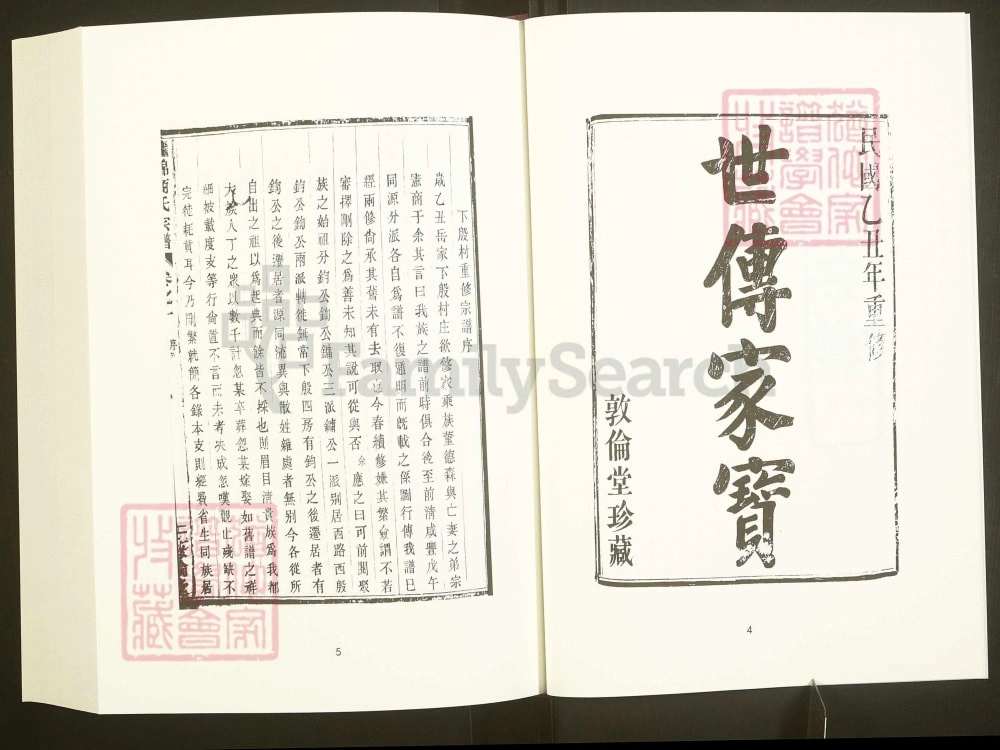 民國乙丑年重修
世傳家寶
敦倫堂珍藏
4
下殷村重修宗譜序
歲乙丑岳家下殷村庄欲修家乘族董德森與亡妻之弟宗
憲商于余其言曰我族之譜前時俱合後至前清咸豐戊午
同源分派各自為譜不復通明而旣載之係圖行傳我譜已
經兩修尙承其舊未有去取之今春續修嫌其繁僉謂不若
審擇刪除之為善未知其說可從與否余應之曰可前聞聚
族之始祖分鈞公鋾公鏞公三派鏞公一派别居西路西殷
鈞公鋾公兩派轉徙無常下殷四房有鈞公之後遷居者有
鋾公之後遷居者源同流異與散姓雜處者無别今各從所
自出之祖以為起典而餘皆不採也則眉目清貴族為我都
大族人丁之衆以數千計忽某卒葬忽某嫁娶如舊譜之祥
細妓載度支等行尙置不言而未考求成忽嘆觀止或缺不
完徒耗貲耳今乃刪繁就簡各錄本支則經費省生同族居
氏宗譜
卷之一
5
FamilySearch